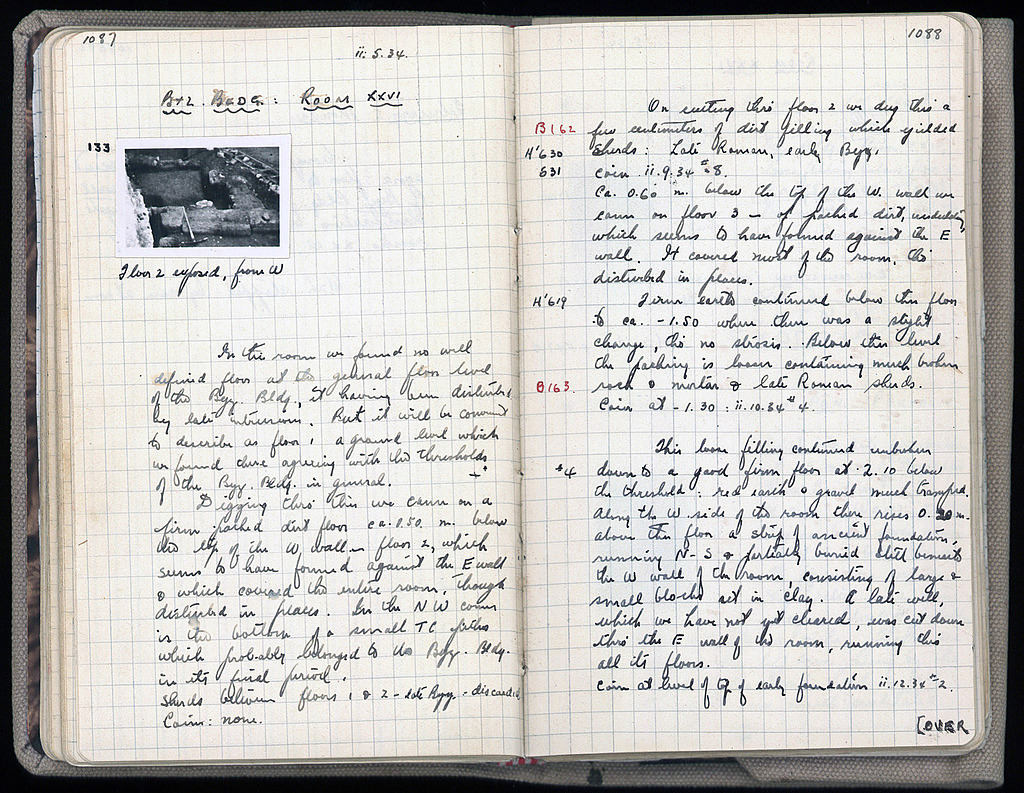 1087
ii.5.34.
Byz. Bldg.: Room XXVI
133
Floor 2 exposed, from W
In this room we found no well
defined floor at the general floor level
of the Byz. Bldg., it having been disturbed
by late intrusions. But it will be convenient
to describe as floor 1 a ground level which
we found there agreeing with the thresholds
of the Byz. Bldg. in general.
Digging thro this we came on a
firm packed dirt floor ca. 0.50 m. below
the top of the W wall – floor 2, which
seems to have formed against the E wall
& which covered the entire room, though
disturbed in places. In the NW corner
is the bottom of a small TC pithos
which probably belonged to the Byz. Bldg.
in its final period.
Sherds between floors 1 & 2 – late Byz – discarded
Coins: none.
1088
On cutting thro' floor 2 we dug thro a
B162 few centimeters of dirt filling which yielded
H'630 sherds: Late Roman, early Byz.
531 coin ii.9.34 #8.
Ca. 0.60 m. below the top of the W. wall we
came on floor 3 – of packed dirt, undulating,
which seems to have formed against the E
wall. It covered most of the room, tho
disturbed in places.
H'619 Firm earth continued below this floor
to ca. -1.50 where there was a slight
change, tho no strosis. Below this level
the packing is looser containing much broken
B163. rock & mortar & late Roman sherds.
Coin at -1.30 : ii.10.34 #4.
This loose filling continued unbroken
*4 down to a good firm floor at -2.10 below
the threshold: red earth & gravel much tramped.
Along the W. side of the room there rises 0.20 m.
above this floor a strip of ancient foundation,
running N-S & partially buried still beneath
the W wall of the room, consisting of large &
small blocks set in clay. A late well,
which we have not yet cleared, was cut down
thro the E wall of the room, running thro
all its floors.
Coin at level of top of early foundation ii.12.34 #2.
[OVER